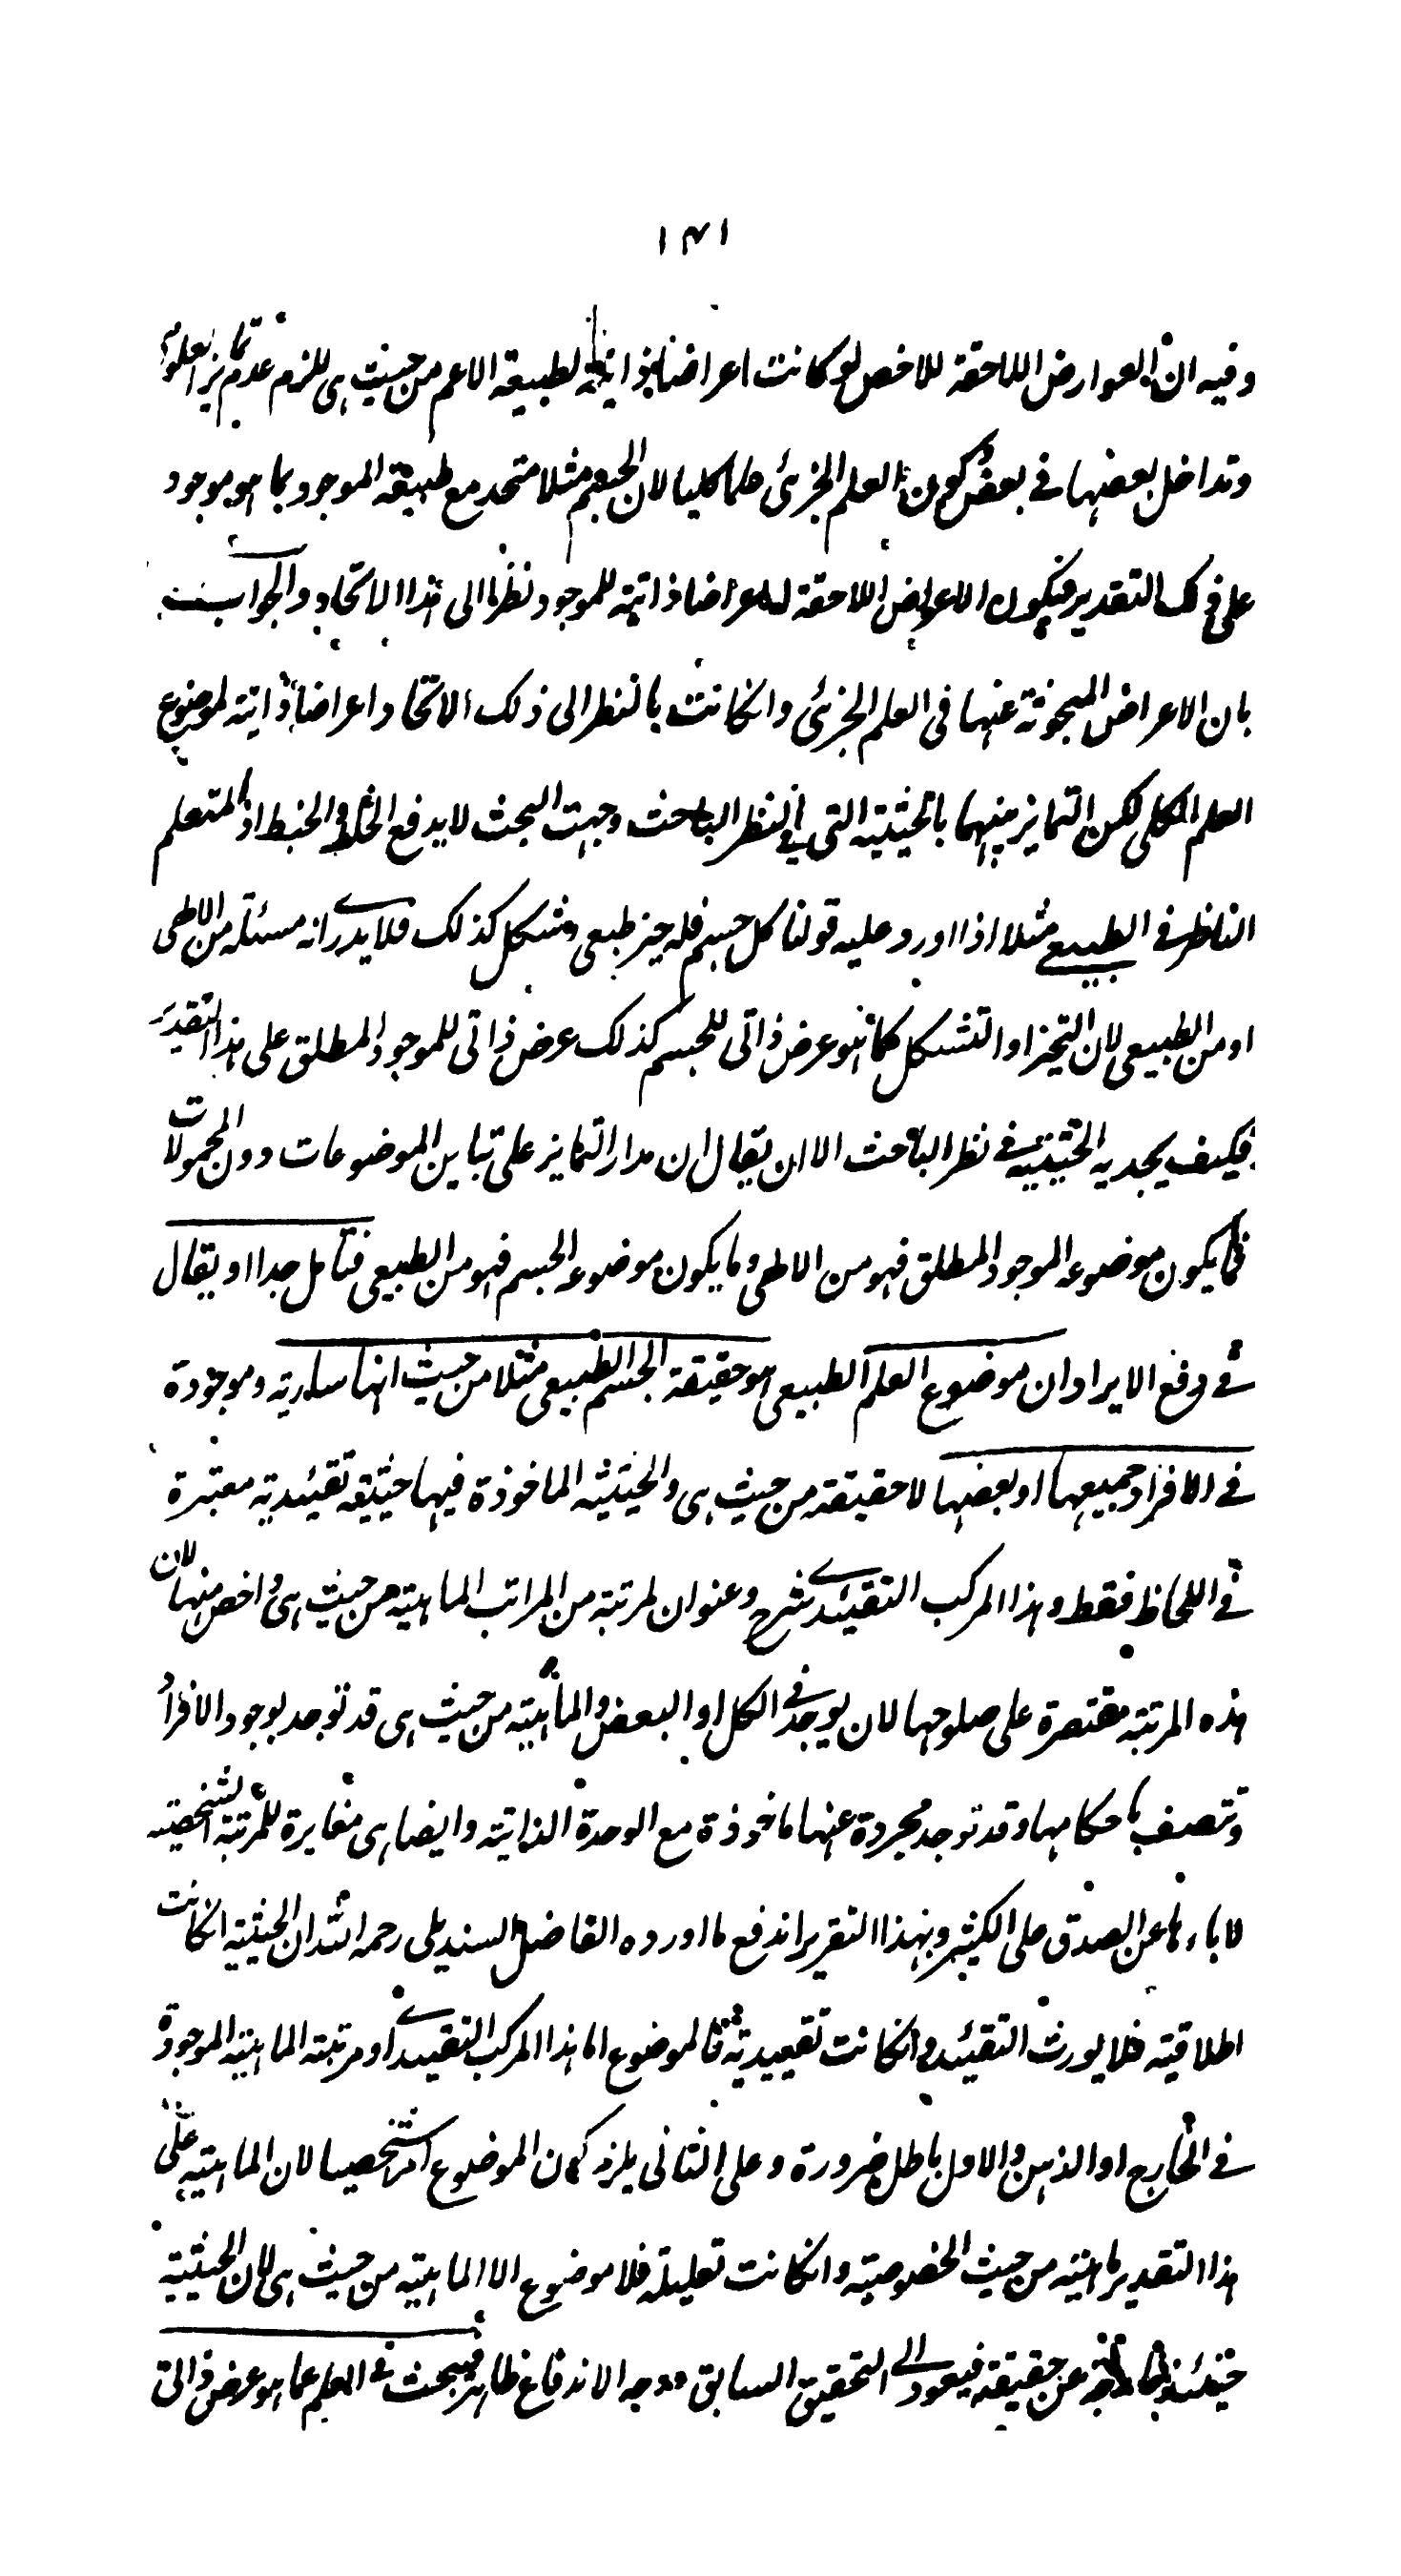 ١٣١
وفيه ان العوارض اللاحقة للاخص لو كانت اعراضا ذاتية لطبيعة الاعم من حيث هى للزم عدم تمايز العلوم
وتداخل بعضها فى بعض وكون العلم الجزئى علما كليا لان الجسم مثلا متحد مع طبيعة الموجود بما هو موجود
على ذلك التقدير فيكون الاعراض اللاحقة له اعراضا ذاتية للموجود نظرا الى هذا الاتحاد والجواب
بان الاعراض المبحوثة عنها فى العلم الجزئى وان كانت بالنظر الى ذلك الاتحاد اعراضا ذاتية لموضوع
العلم الكلى لكن التمايز بينهما بالحيثية التى فى نظر الباحث وجهت البحث لا يدفع الخلط والخبط اذ المتعلم
الناظر فى الطبيعى مثلا اذا اورد عليه قولنا كل جسم فله حيز طبعى وشكل كذلك فلا يدرى انه مسئلة من الالهى
او من الطبيعى لان التحيز او التشكل كما انه عرض ذاتى للجسم كذلك عرض ذاتى للموجود المطلق على هذا التقدير
فكيف يجديه الحيثية فى نظر الباحث الا ان يقال ان مدار التمايز على تباين الموضوعات دون المحمولات
فما يكون موضوعه الموجود المطلق فهو من الالهى وما يكون موضوعه الجسم فهو من الطبيعى فتامل جدا او يقال
فى دفع الايراد ان موضوع العلم الطبيعى هو حقيقة الجسم الطبيعى مثلا من حيث انها سارية وموجودة
فى الافراد جميعها او بعضها لا حقيقة من حيث هى والحيثية الماخوذة فيها حيثية تقييدية معتبرة
فى اللحاظ فقط وهذا المركب التقييدى شرح وعنوان لمرتبة من المراتب الماهية من حيث هى واخص منها لان
هذه المرتبة مقتصرة على صلوحها لان يوجد فى الكل او البعض والماهية من حيث هى قد توجد بوجود الافراد
وتتصف باحكامها وقد توجد مجردة عنها ماخوذة مع الوحدة الذاتية وايضا هى مغايرة للمرتبة الشخصية
لاباءها عن الصدق على الكثير وبهذا التقرير اندفع ما اورده الفاضل السنديلى رحمه الله ان الحيثية ان كانت
اطلاقية فلا يورث التقييد وان كانت تقييدية فالموضوع اما هذا المركب التقييدى او مرتبة الماهية الموجودة
فى الخارج او الذهن والاول باطل ضرورة وعلى الثانى يلزم كون الموضوع امرا شخصيا لان الماهية على
هذا التقدير ماهية من حيث الخصوصية وان كانت تعليلة فلا موضوع الا الماهية من حيث هى لان الحيثية
حينئذ خارجة عن حقيقة فيعود الى التحقيق السابق ووجه الاندفاع ظاهر فيبحث فى العلم عما هو عرض ذاتى